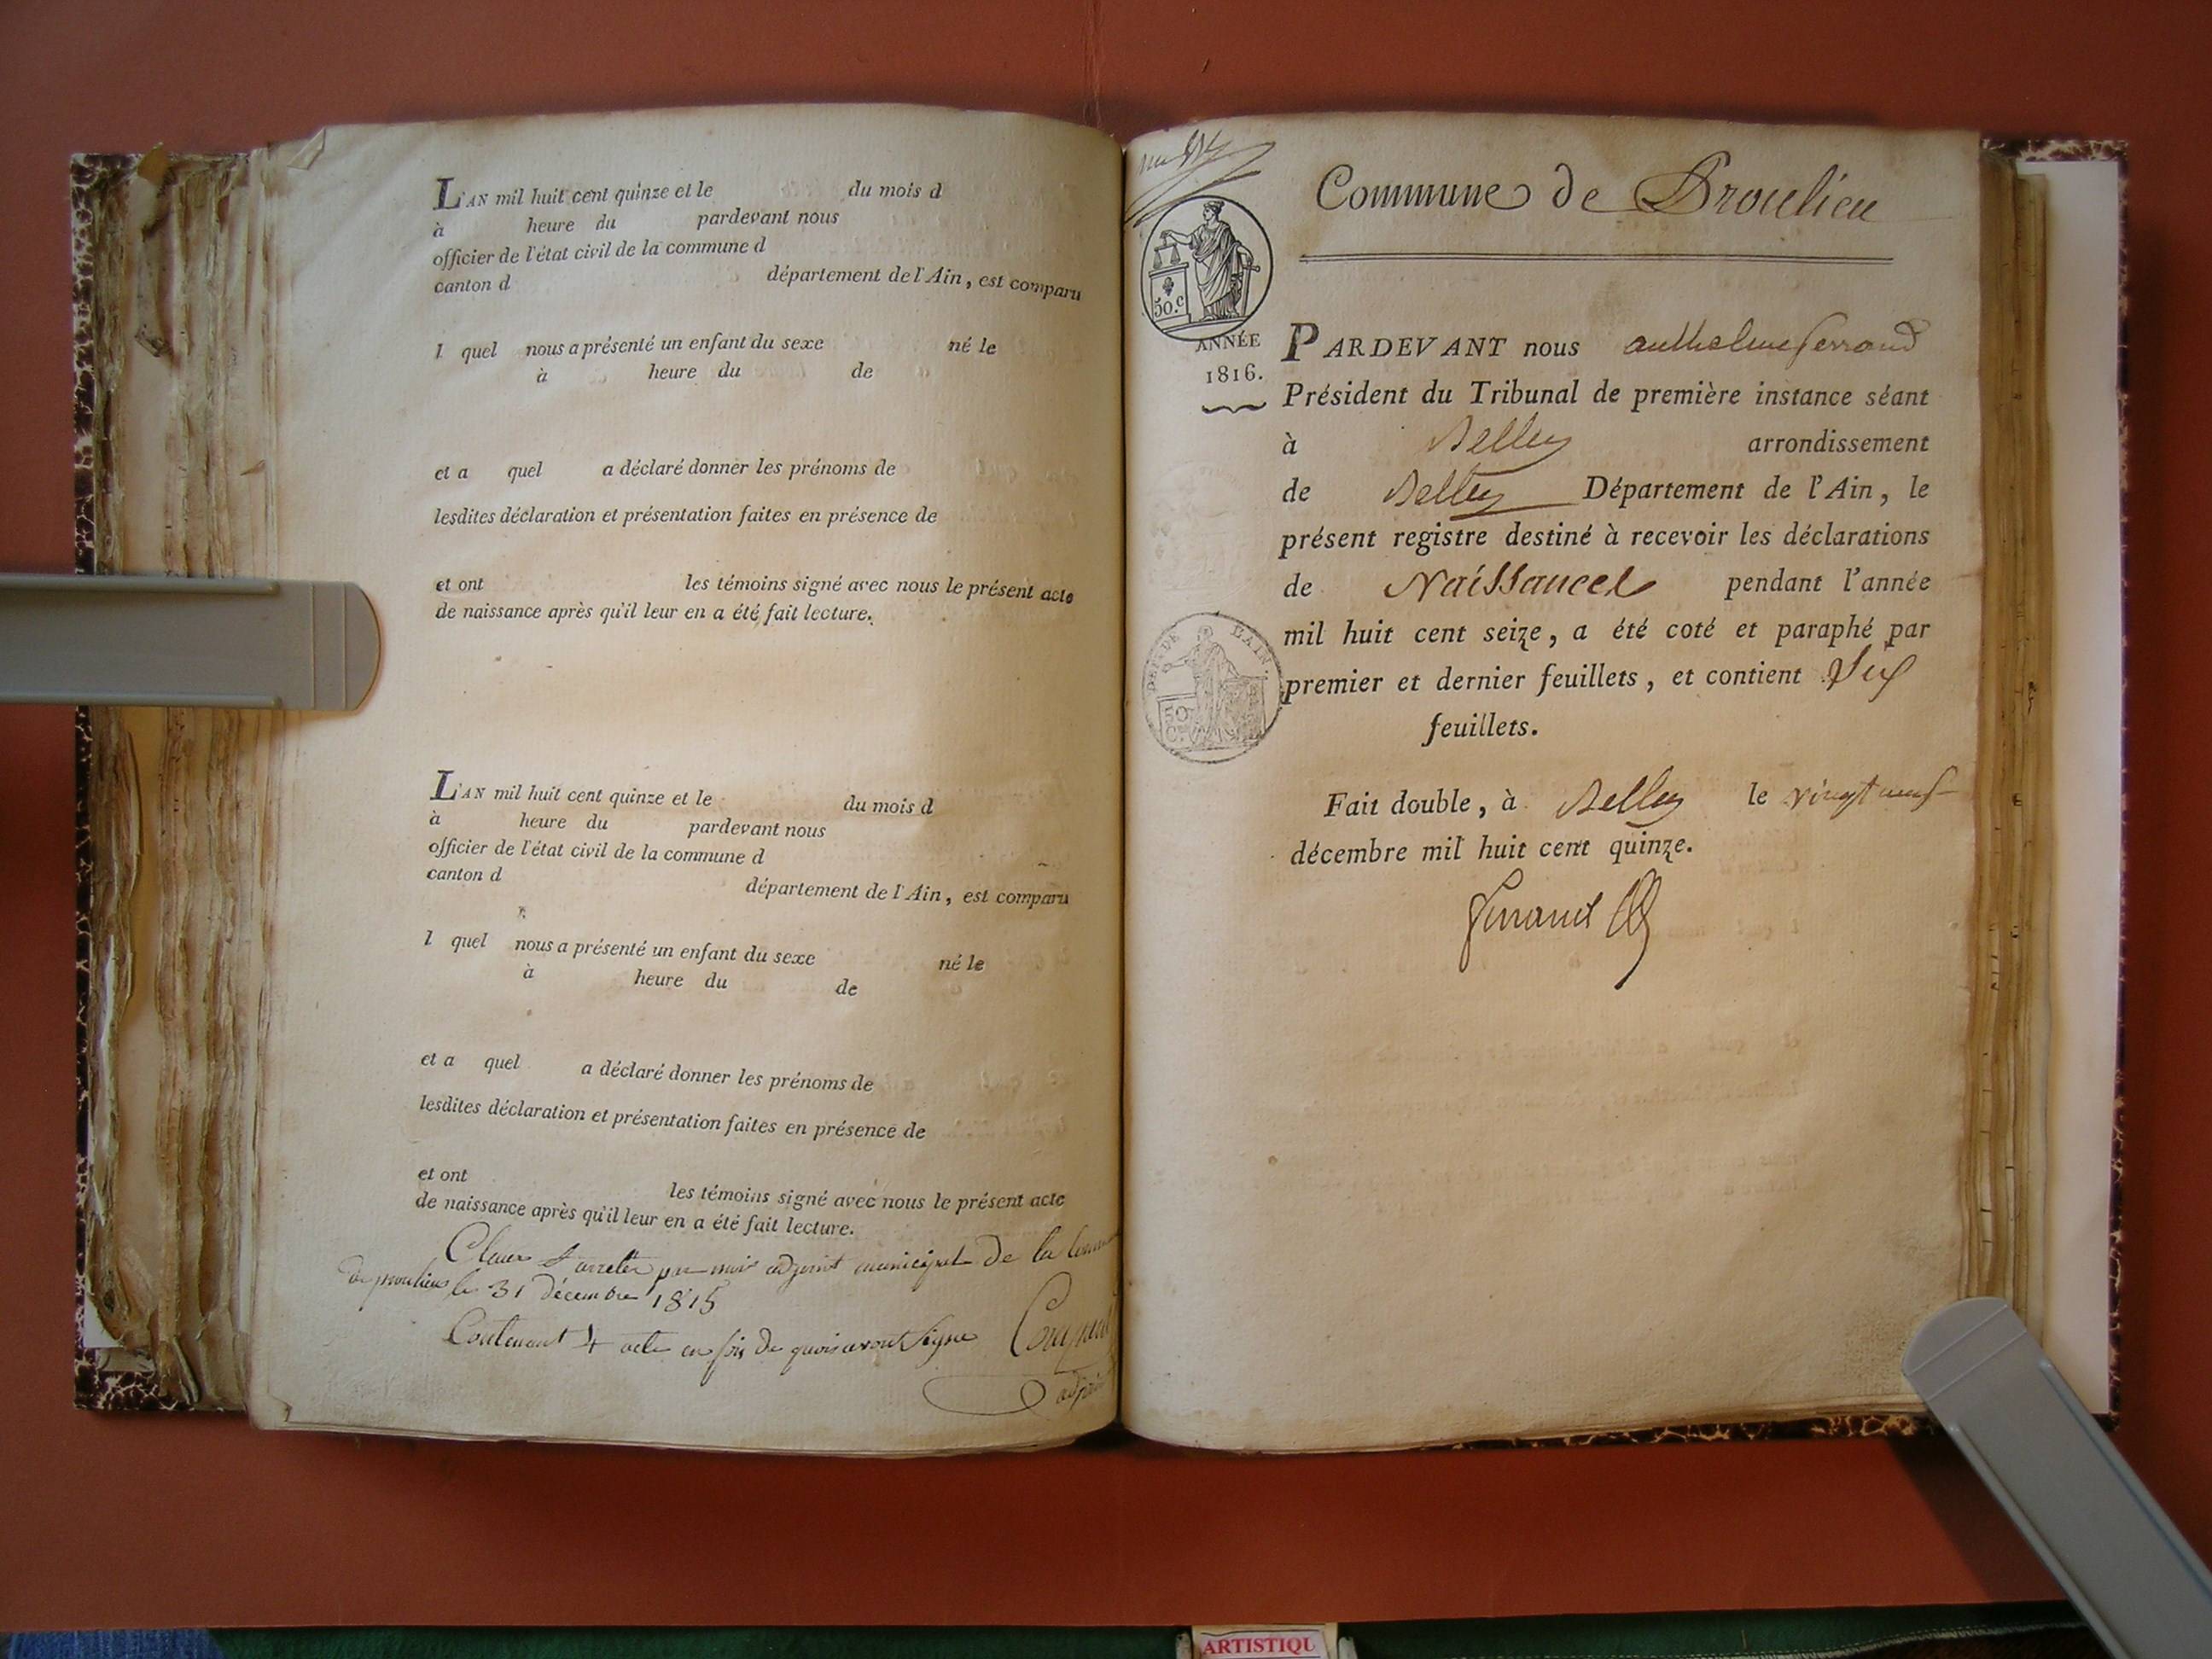 L'AN mil huit cent quinze et le du mois d
à heure du pardevant nous
officier de l'état civil de la commune d
canton d département de l'Ain, est comparu
l quel nous a présenté un enfant du sexe né le
à heure du de
et a quel a déclaré donner les prénoms de
lesdites déclaration et présentation faites en présence de
et ont les témoins signé avec nous le présent acte
de naissance après qu'il leur en a été fait lecture.
L'AN mil huit cent quinze et le du mois d
à heure du pardevant nous
officier de l'état civil de la commune d
canton d département de l'Ain, est comparu
l quel nous a présenté un enfant du sexe né le
à heure du de
et a quel a déclaré donner les prénoms de
lesdites déclaration et présentation faites en présence de
et ont les témoins signé avec nous le présent acte
de naissance après qu'il leur en a été fait lecture.
arreter par moi adjoint municipal de la
le 31 décembre 1815
Contenant 4 acte en foi de quoi avont signe
adjoint
Commune de
50.c
ANNÉE
1816.
DEP. DE L'AIN.
50
C.
PARDEVANT nous anthelme ferrand
Président du Tribunal de première instance séant
à Belley arrondissement
de Belley Département de l'Ain, le
présent registre destiné à recevoir les déclarations
de Naissances pendant l'année
mil huit cent seize, a été coté et paraphé par
premier et dernier feuillets, et contient Six
feuillets.
Fait double, à Belley le vingt neuf
décembre mil huit cent quinze.
ferrand
ARTISTIQU